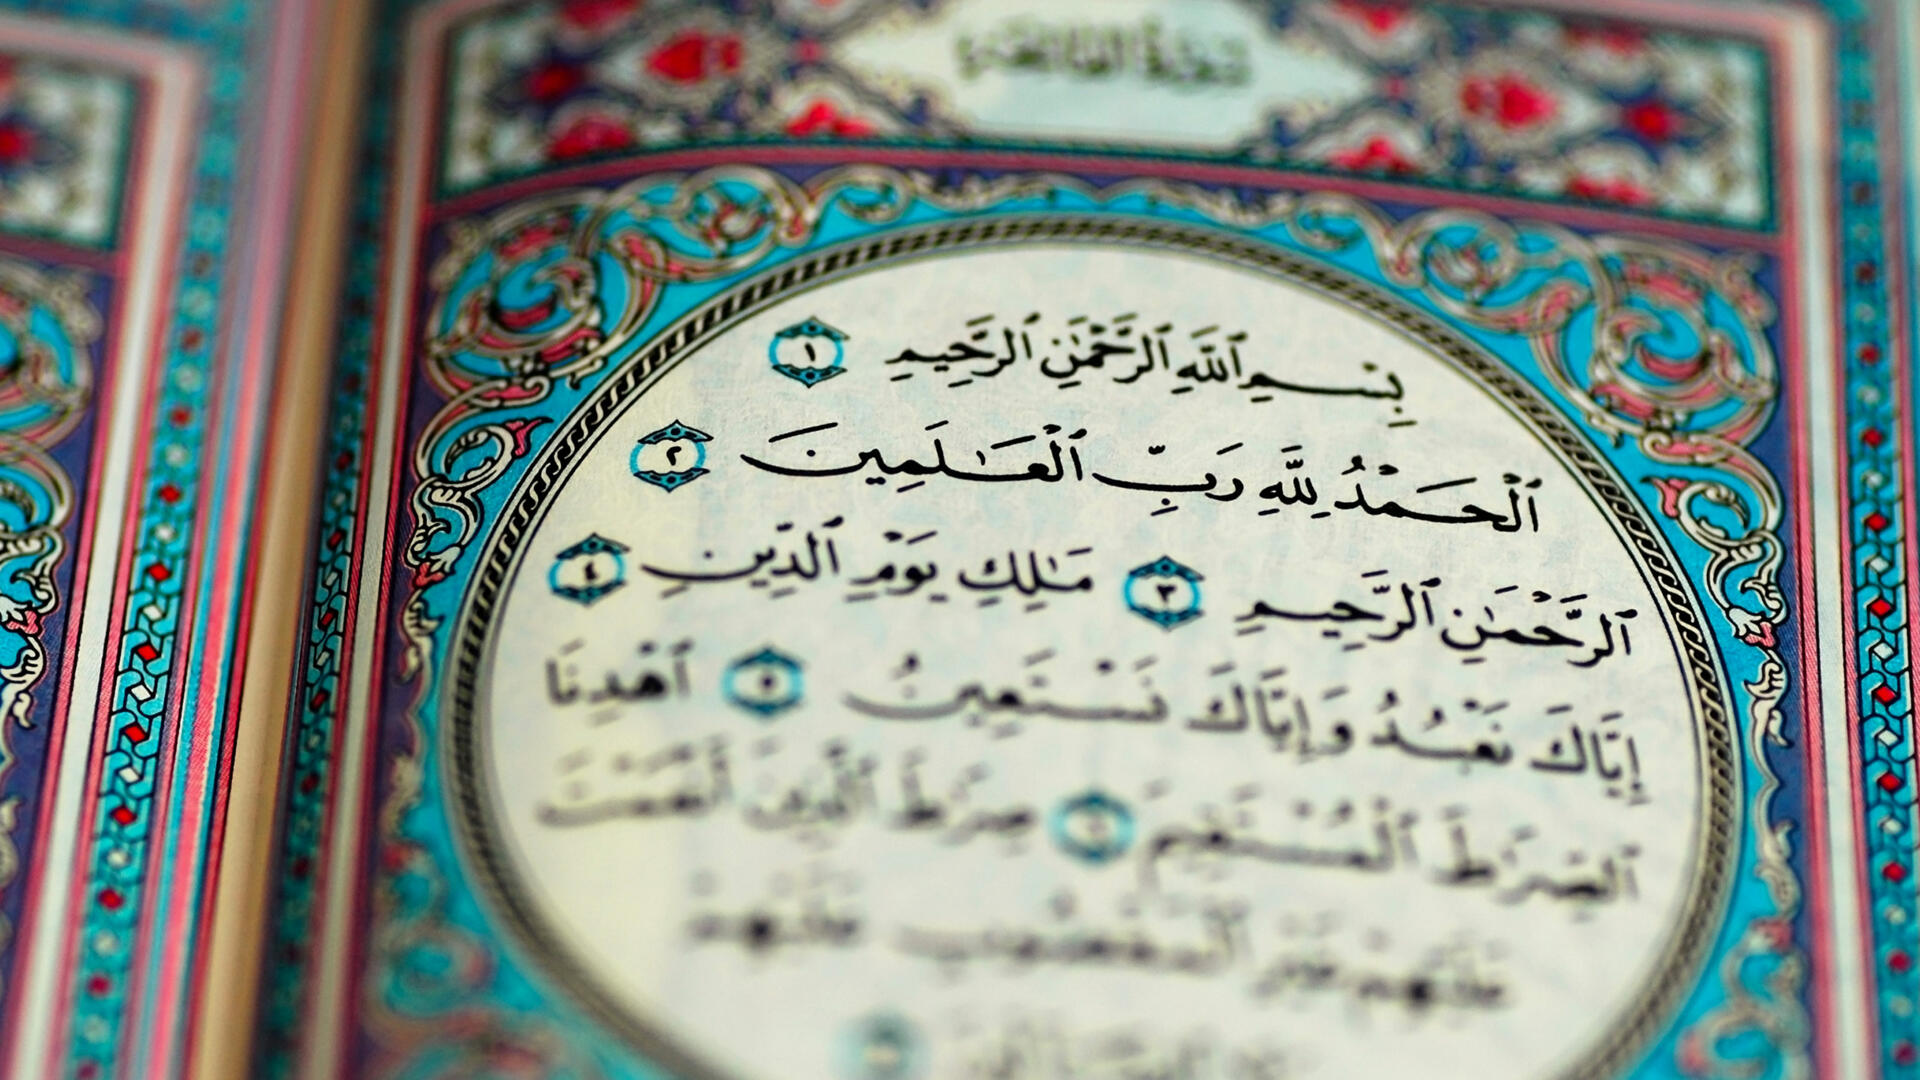 سورة الفاتحة
بِسْمِ ٱللَّهِ ٱلرَّحْمَٰنِ ٱلرَّحِيمِ ١
ٱلْحَمْدُ لِلَّهِ رَبِّ ٱلْعَٰلَمِينَ ٢
ٱلرَّحْمَٰنِ ٱلرَّحِيمِ ٣ مَٰلِكِ يَوْمِ ٱلدِّينِ ٤
إِيَّاكَ نَعْبُدُ وَإِيَّاكَ نَسْتَعِينُ ٥ ٱهْدِنَا
ٱلصِّرَٰطَ ٱلْمُسْتَقِيمَ ٦ صِرَٰطَ ٱلَّذِينَ أَنْعَمْتَ
عَلَيْهِمْ غَيْرِ ٱلْمَغْضُوبِ عَلَيْهِمْ